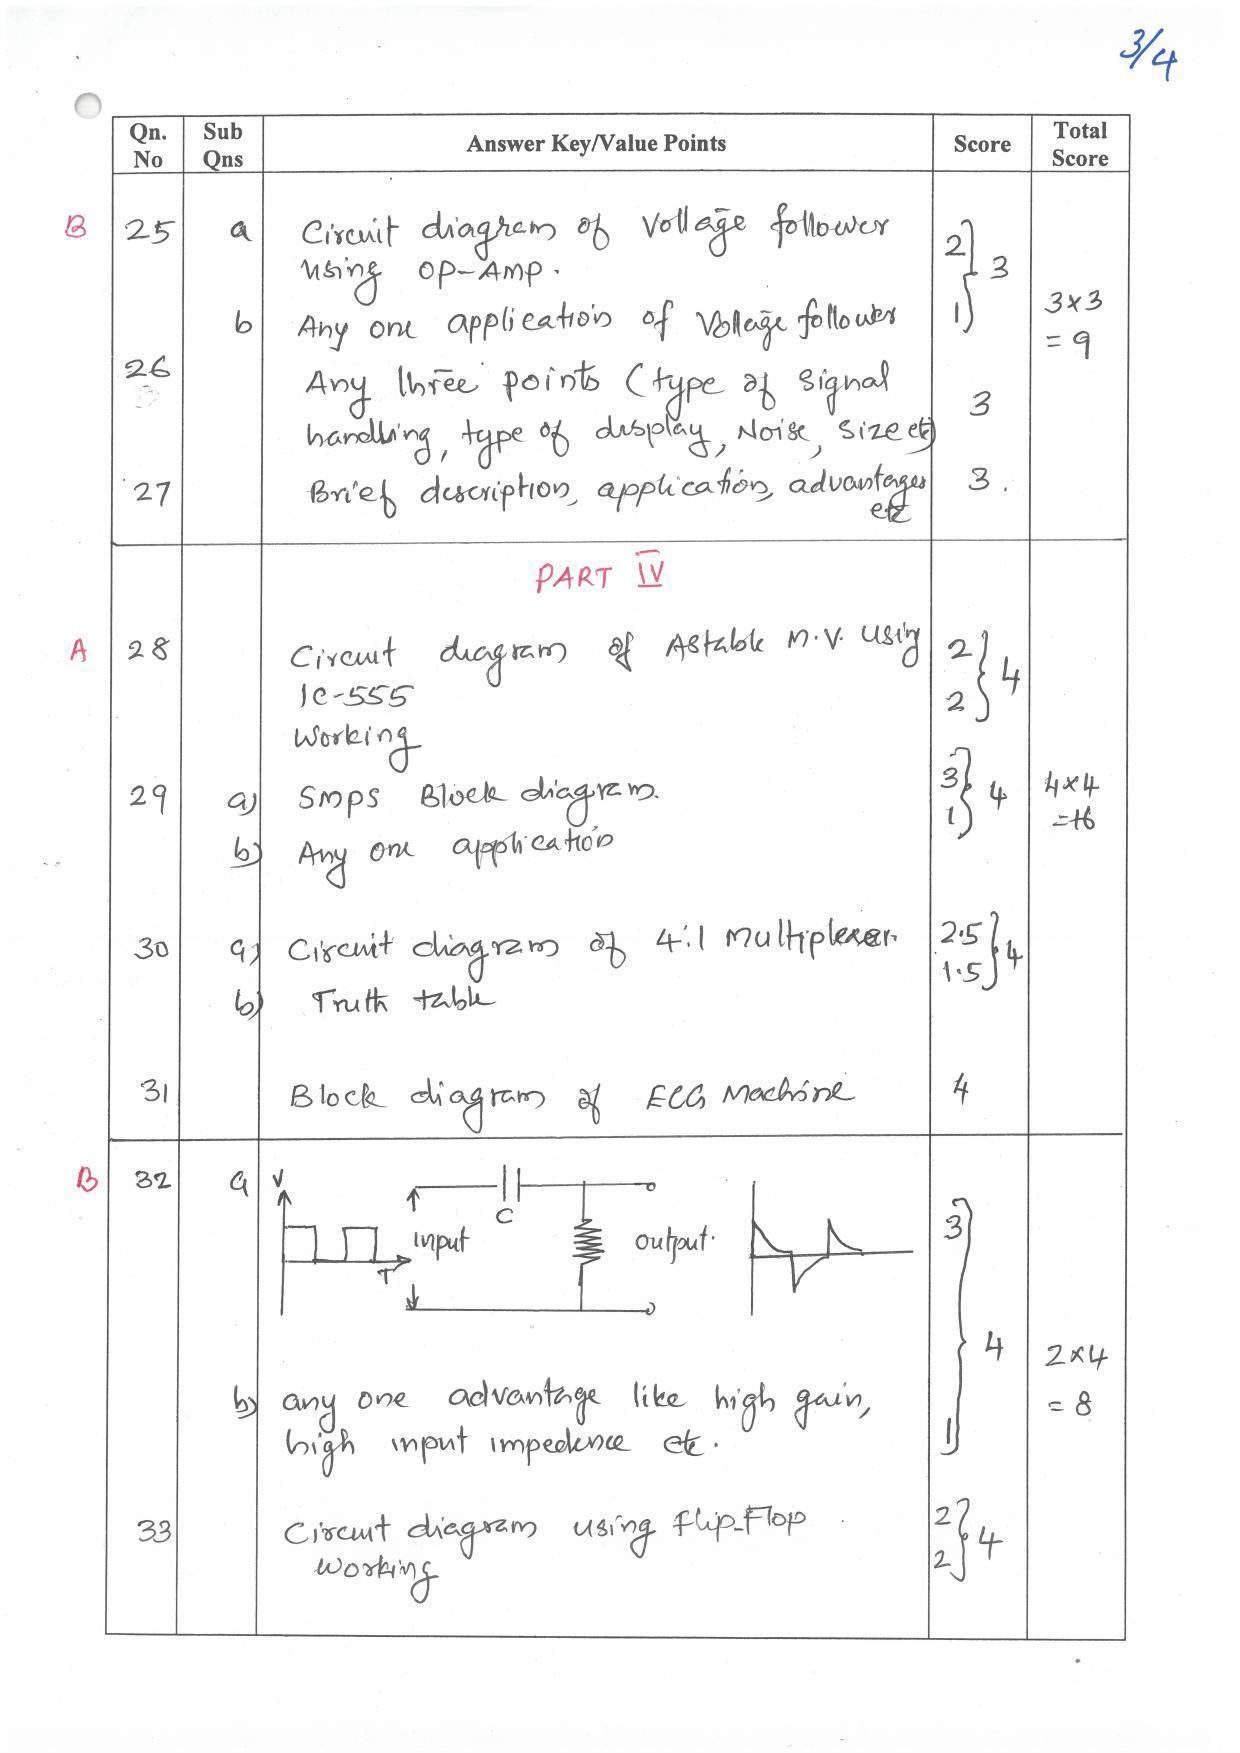 3/4
Qn. No
Sub Qns
Answer Key/Value Points
Score
Total Score
B 25 a Circuit diagram of Voltage follower 2
using OP-Amp. 3
b Any one application of Voltage follower 1
3x3
= 9
26 Any three points (type of signal
handling, type of display, Noise, Size etc) 3
27 Brief description, application, advantages 3.
etc
PART IV
A 28 Circuit diagram of Astable M.V. Using 2
IC-555 2 4
Working
29 a) Smps Block diagram. 3
b) Any one application 1 4
4x4
=16
30 a) Circuit diagram of 4:1 Multiplexer. 2.5
b) Truth table 1.5 4
31 Block diagram of ECG Machine 4
B 32 a V
C
Input
T
output.
3
b) any one advantage like high gain, 4
high input impedence etc. 1
2x4
= 8
33 Circuit diagram using Flip-Flop 2
Working 2 4